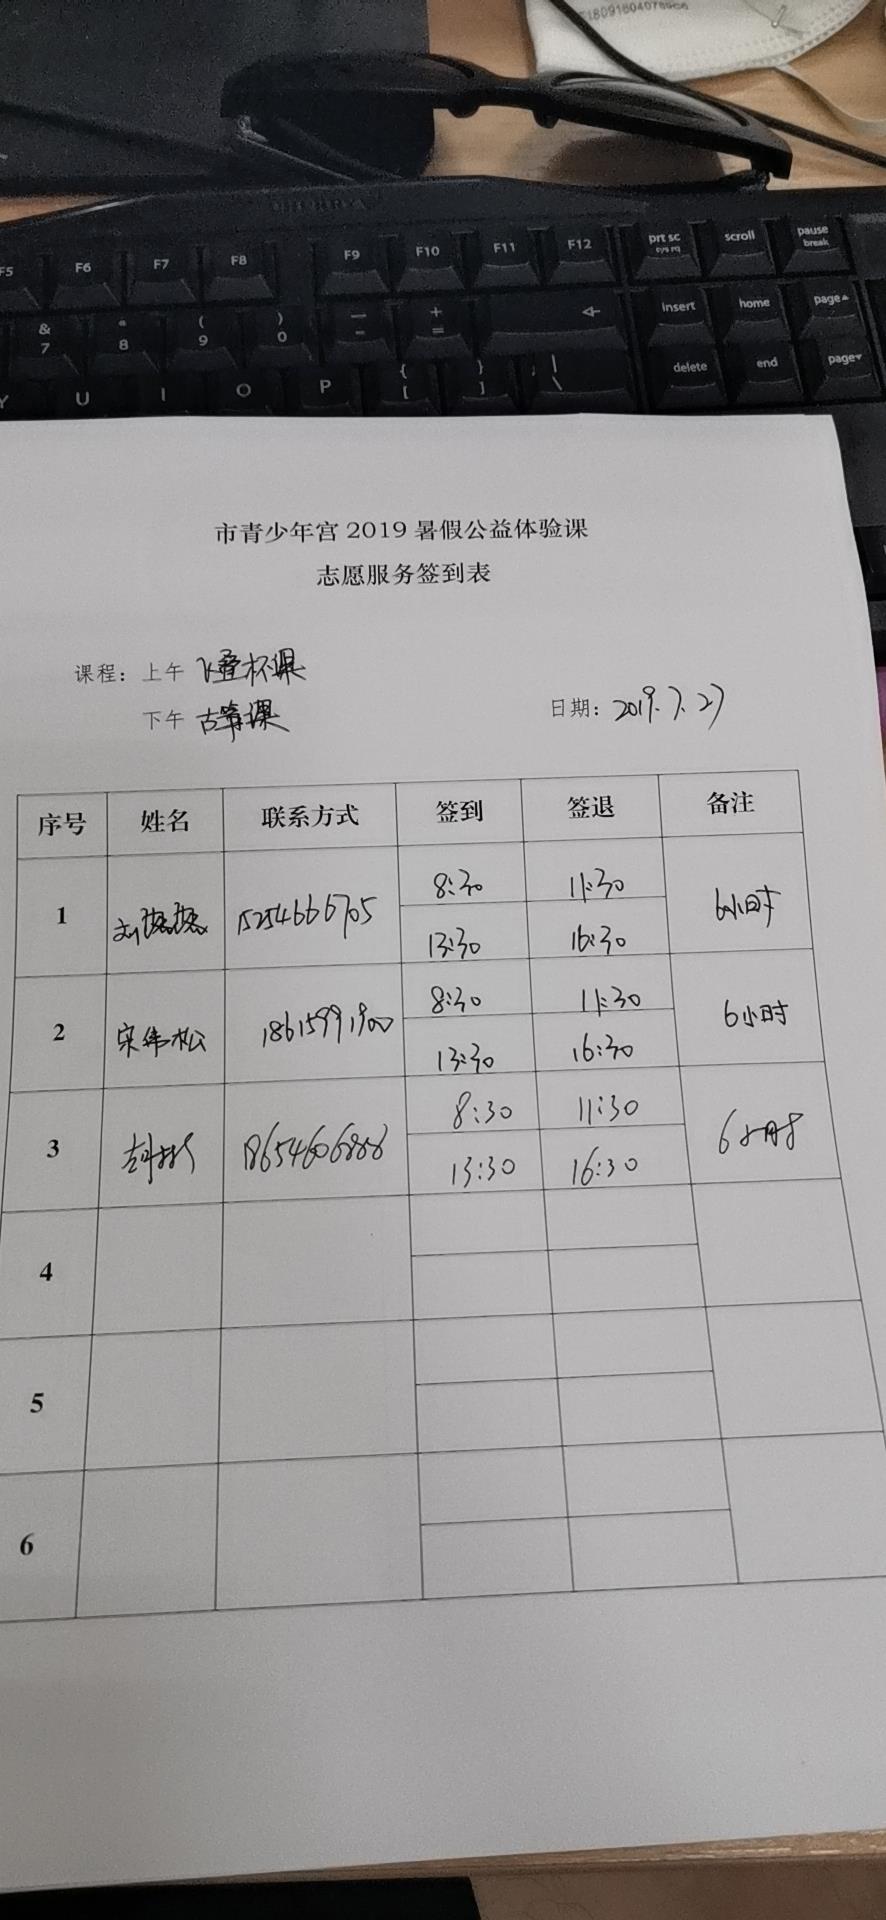 F5 F6 F7 F8 F9 F10 F11 F12 prt sc sys rq scroll pause break
& 7 * 8 ( 9 ) 0 — - + = insert home page▲
Y U I O P { [ } ] | \ delete end page▼
市青少年宫 2019 暑假公益体验课
志愿服务签到表
课程：上午 飞叠杯课
下午 古筝课 日期：2019.7.27
序号 姓名 联系方式 签到 签退 备注
1 15254666705 8:30 11:30 6小时
13:30 16:30
2 宋伟松 18615991900 8:30 11:30 6小时
13:30 16:30
3 18654606888 8:30 11:30 6小时
13:30 16:30
4
5
6